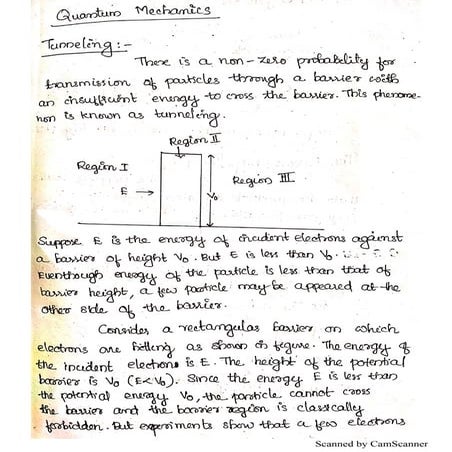 Quantum Mechanics
Tunneling :-
There is a non-zero probability for
transmission of particles through a barrier with
an insufficient energy to cross the barrier. This phenome-
non is known as tunneling.
Region II
Region I
Region III
E →
V₀
Suppose E is the energy of incident electrons against
a barrier of height V₀. But E is less than V₀.
Eventhough energy of the particle is less than that of
barrier height, a few particle may be appeared at the
other side of the barrier.
Consider a rectangular barrier on which
electrons are falling as shown in figure. The energy of
the incident electrons is E. The height of the potential
barrier is V₀ (E<V₀). Since the energy E is less than
the potential energy V₀, the particle cannot cross
the barrier and the barrier region is classically
forbidden. But experiments show that a few electrons
Scanned by CamScanner